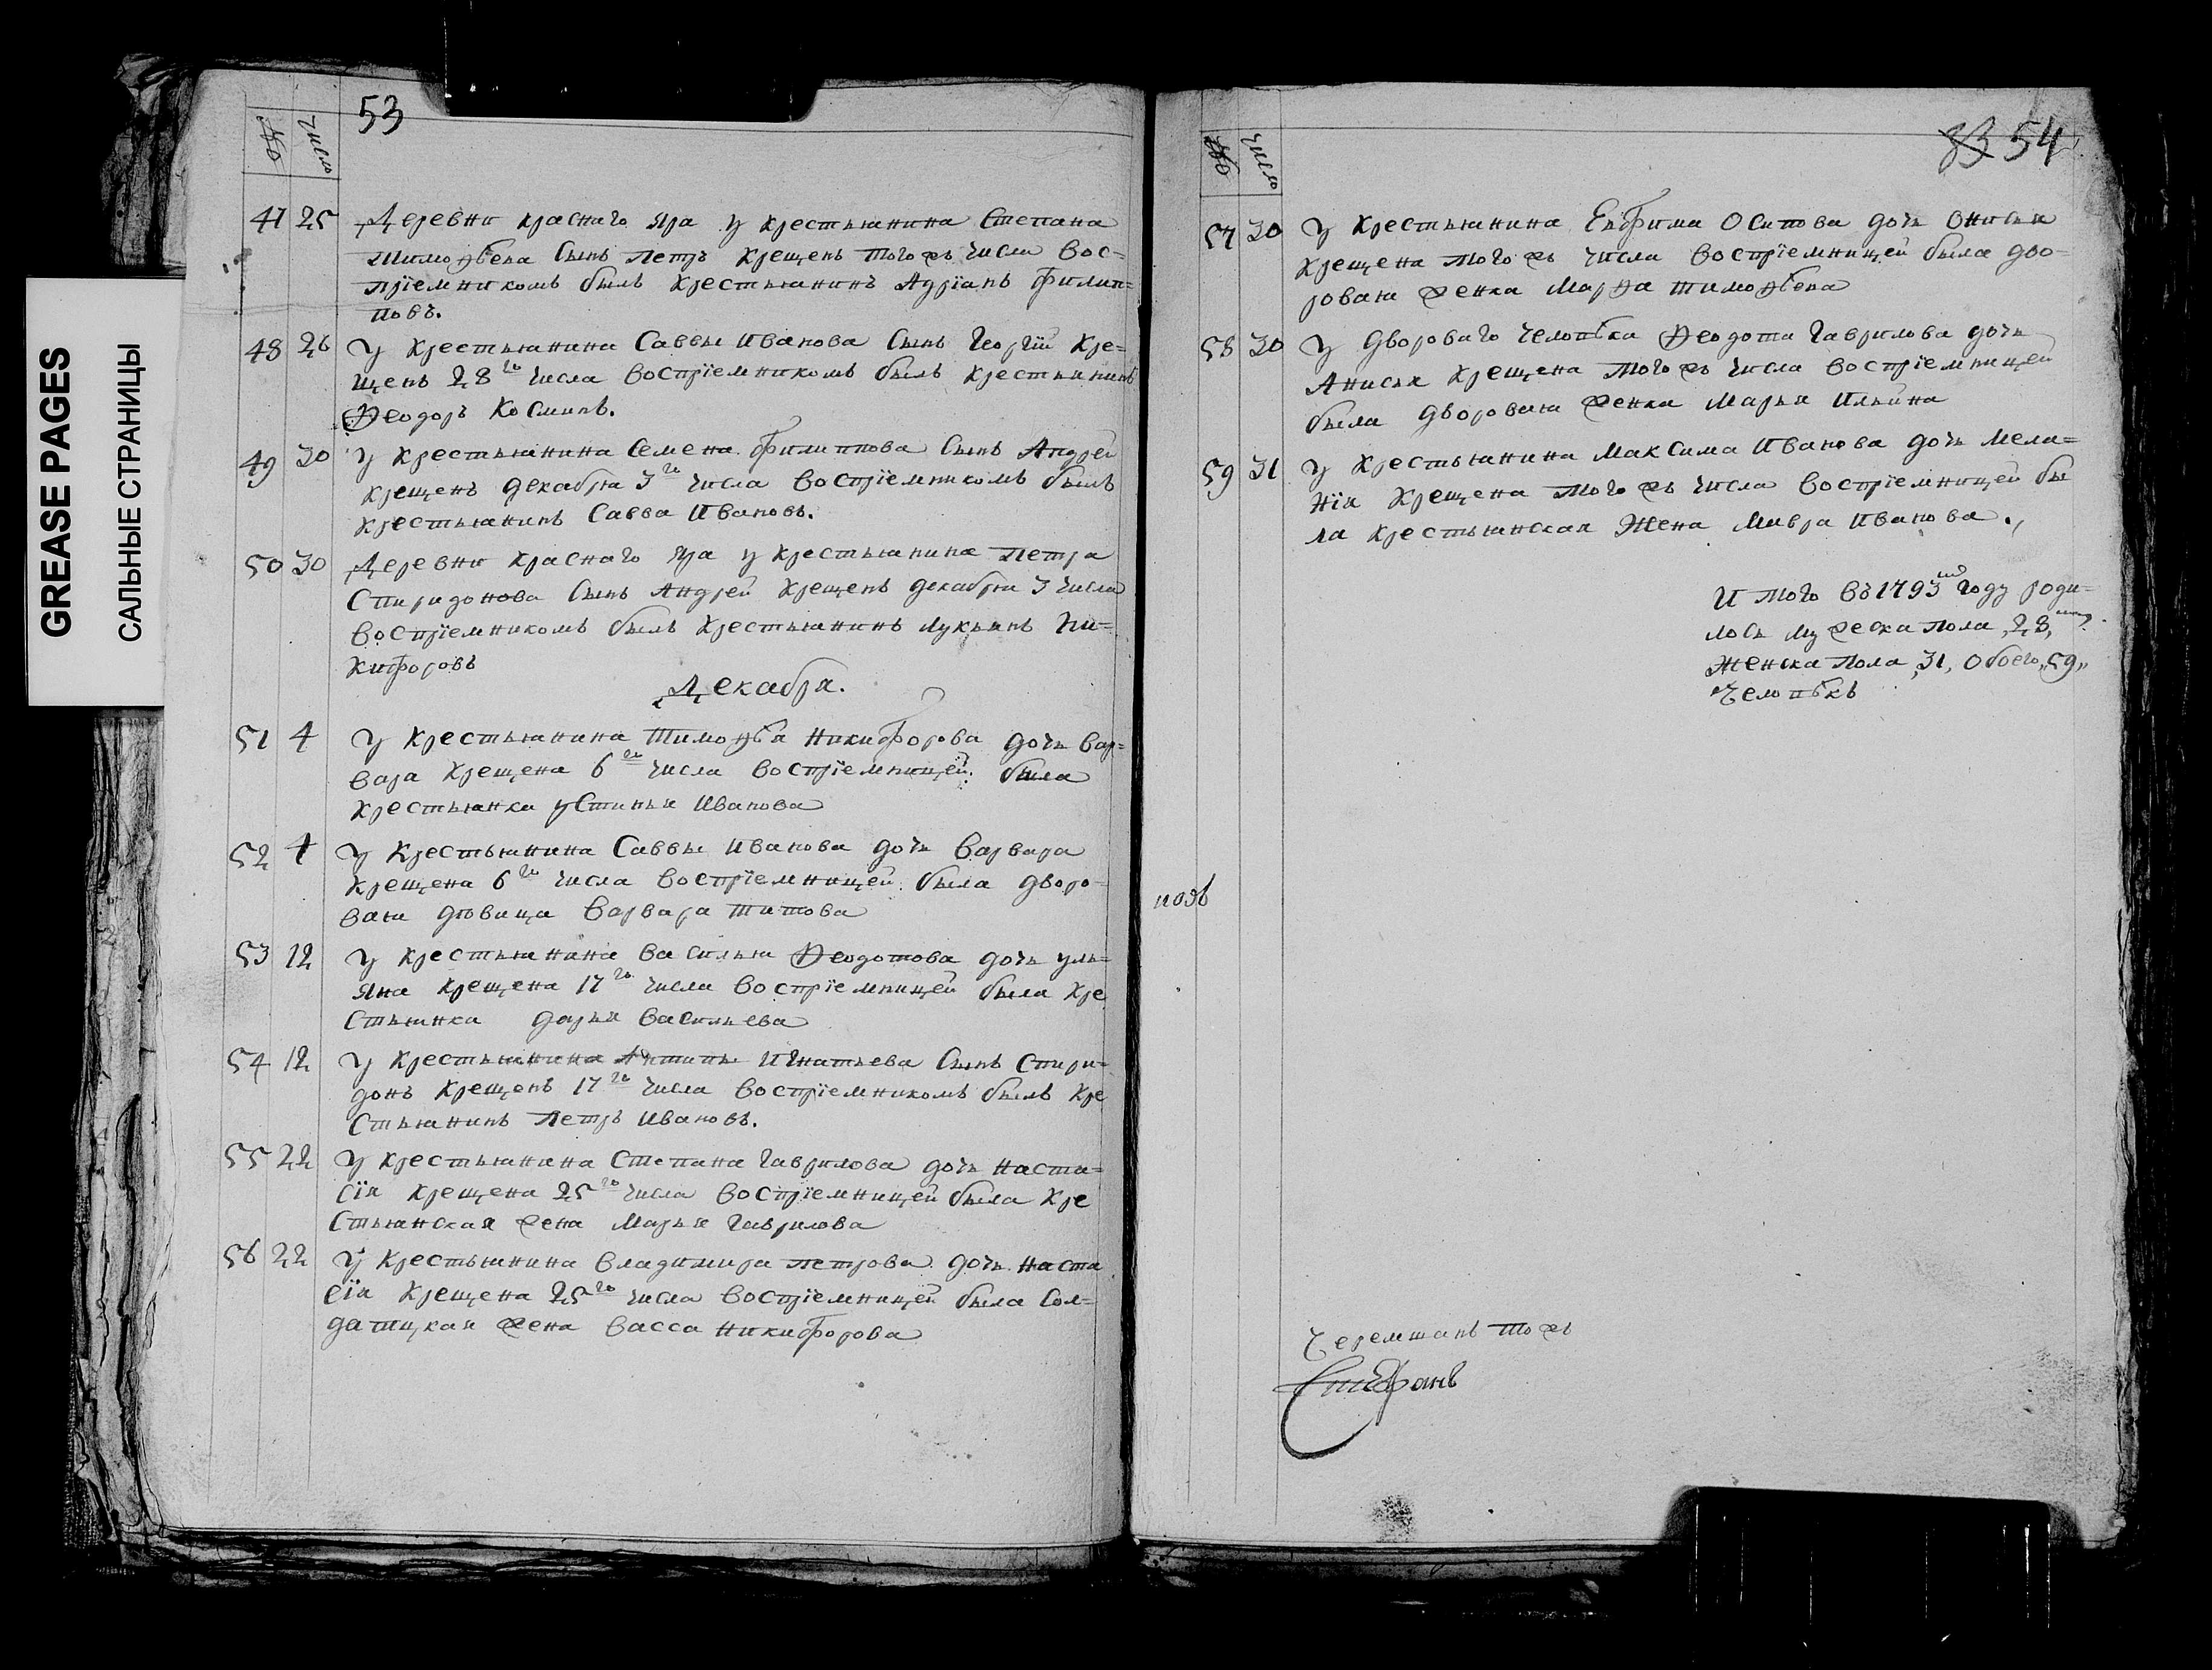 GREASE PAGES
САЛЬНЫЕ СТРАНИЦЫ
53
№ число
47 25 Деревни краснаго Яра у крестьянина Степана
Тимоѳѣева Сынъ Петръ крещенъ того жъ числа вос=
пріемникомъ былъ крестьянинъ Адріанъ филип=
повъ.
48 26 У крестьянина Саввы Иванова Сынъ Георгій кре=
щенъ 28го числа воспріемникомъ былъ крестьянинъ
Ѳеодоръ Косминъ.
49 30 У крестьянина Семена филиппова Сынъ Андрей
крещенъ декабря 3го числа воспріемникомъ былъ
крестьянинъ Савва Ивановъ.
50 30 Деревни краснаго Яра у крестьянина Петра
Спиридонова Сынъ Андрей крещенъ декабря 3 числа
воспріемникомъ былъ крестьянинъ Лукьянъ Ни=
кифоровъ
Декабря.
51 4 У крестьянина Тимоѳѣя Никифорова дочь вар=
вара крещена 6го числа воспріемницей была
крестьянка устинья Иванова
52 4 У крестьянина Саввы Иванова дочь варвара
крещена 6го числа воспріемницей была дворо=
вая девица варвара Титова
53 12 У крестьянина василья Ѳеодотова дочь уль=
яна крещена 17го числа воспріемницей была кре
стьянка дарья васильева
54 12 У крестьянина Игнатьева Сынъ Спири=
донъ крещенъ 17го числа воспріемникомъ былъ кре
стьянинъ Петръ Ивановъ.
55 22 У крестьянина Степана гаврилова дочь наста=
сія крещена 25го числа воспріемницей была кре
стьянская жена Марья гаврилова
56 22 У крестьянина владимира петрова дочь наста
сія крещена 25го числа воспріемницей была Сол=
датцкая жена васса никифорова
83 54
№ число
57 30 У крестьянина Ефрима Осипова дочь Онисья
крещена того жъ числа воспріемницей была дво=
ровая женка Марѳа тимоѳѣева
58 30 У двороваго человѣка Ѳеодота гаврилова дочь
Анисья крещена того жъ числа воспріемницей
была дворовая женка Марья Ильина
59 31 У крестьянина Максима Иванова дочь мела=
нія крещена того жъ числа воспріемницей бы
ла крестьянская жена Мавра Иванова.,
И того въ 1793мъ году роди=
лось мужеска пола 28,
женска пола, 31, Обоего,,59,,
человѣкъ
Черемшанъ тожъ
Стефанъ